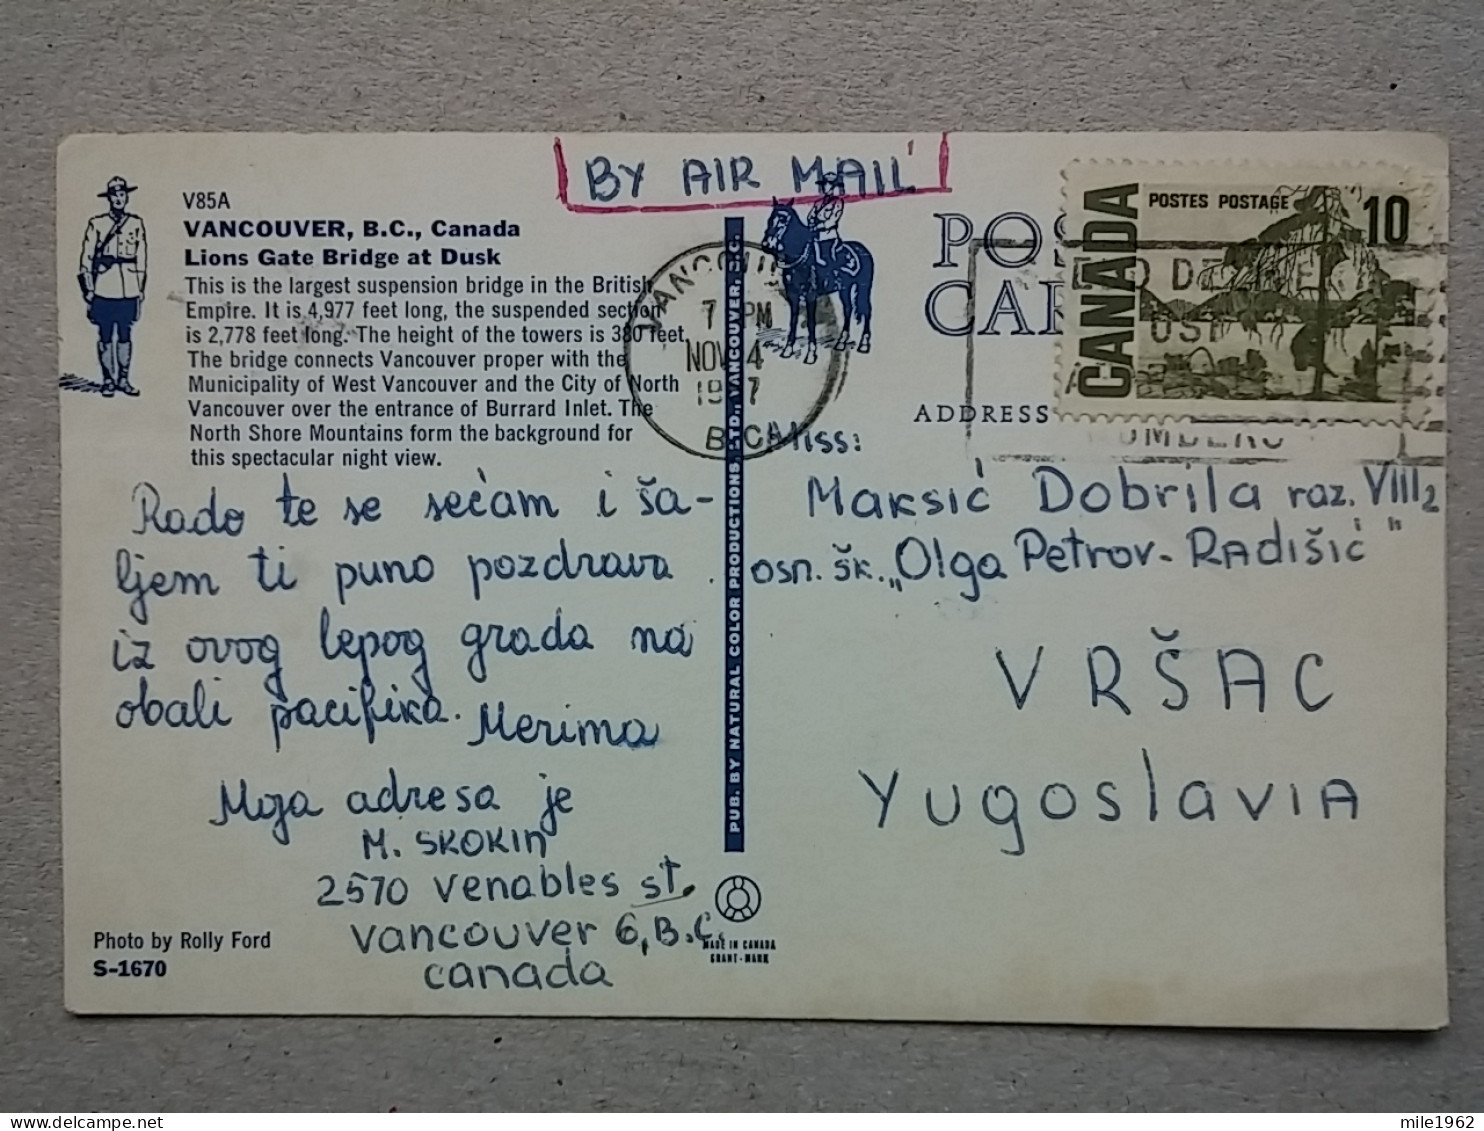 BY AIR MAIL
V85A
VANCOUVER, B.C., Canada
Lions Gate Bridge at Dusk
This is the largest suspension bridge in the British
Empire. It is 4,977 feet long, the suspended section
is 2,778 feet long. The height of the towers is 380 feet.
The bridge connects Vancouver proper with the
Municipality of West Vancouver and the City of North
Vancouver over the entrance of Burrard Inlet. The
North Shore Mountains form the background for
this spectacular night view.
Rado te se sećam i ša-
ljem ti puno pozdrava
iz ovog lepog grada na
obali pacifika. Merima
Moja adresa je
M. SKOKIN
2570 Venables st.
Vancouver 6, B.C.
Canada
Photo by Rolly Ford
S-1670
PUB. BY NATURAL COLOR PRODUCTIONS, LTD., VANCOUVER, B.C.
MADE IN CANADA
VANCOUVER
7 PM
NOV 4
B.C.
POS
CAR
CANADA
POSTES POSTAGE
10
ADDRESS
Miss:
Maksić Dobrila raz. VIII2
osn. šk. „Olga Petrov-Radišić"
VRŠAC
Yugoslavia
mile1962